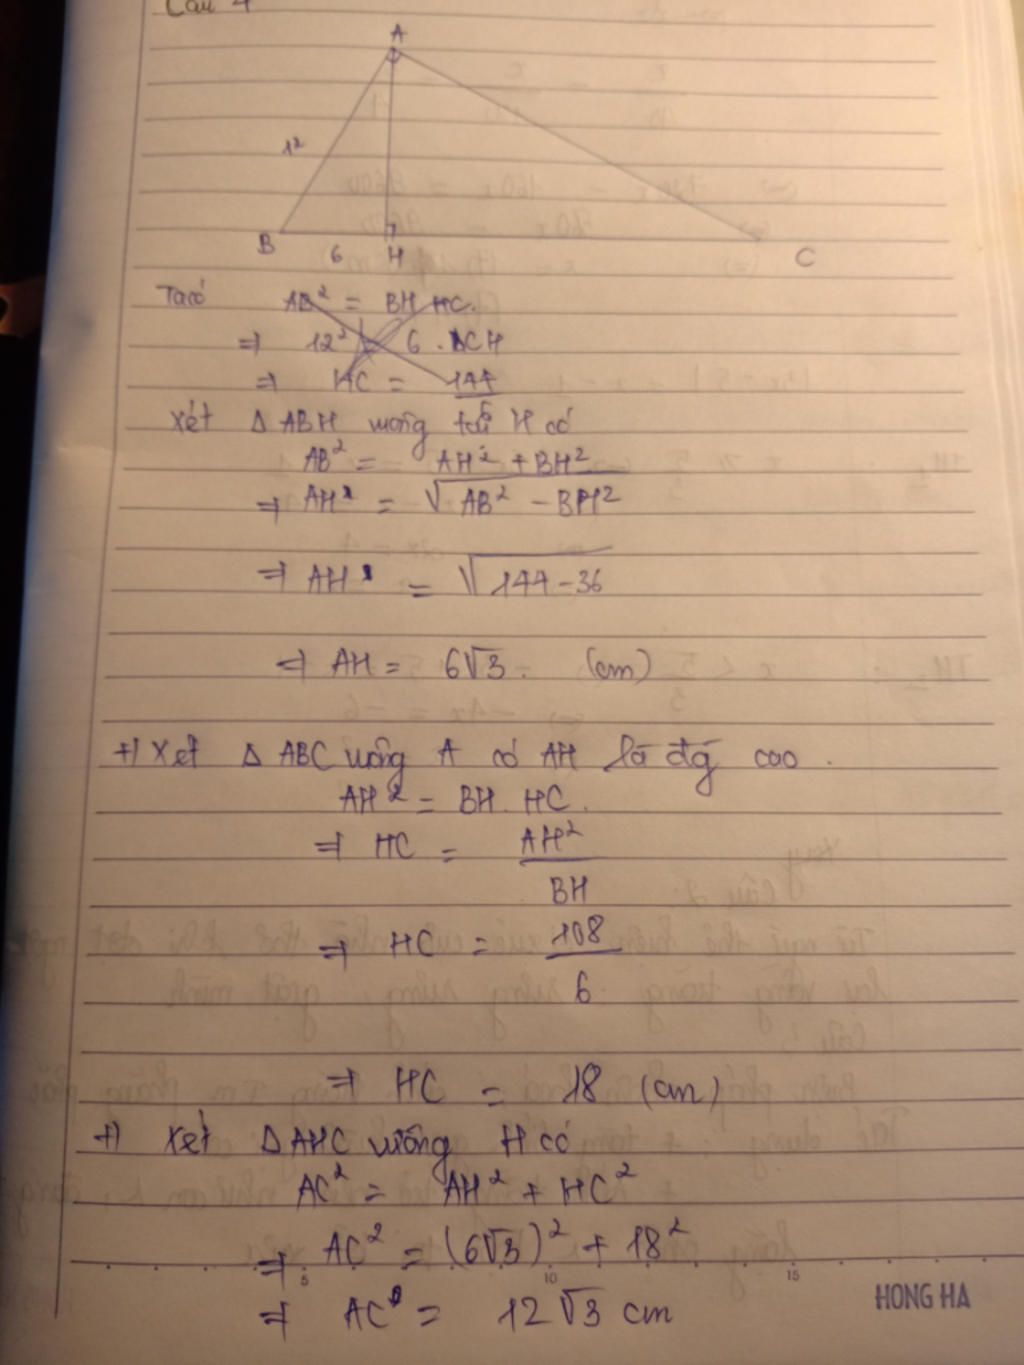 Câu 4
A
12
B
6
H
C
Ta có AB² = BH HC.
⇒ 12² = 6 . CH
⇒ HC = 144
6
Xét Δ ABH vuông tại H có
AB² = AH² + BH²
⇒ AH = √AB² - BH²
⇒ AH = √144 - 36
⇒ AH = 6√3. (cm)
+) Xét Δ ABC vuông A có AH là đg cao.
AH² = BH. HC.
⇒ HC = AH²
BH
⇒ HC = 108
6
⇒ HC = 18 (cm)
+) Xét Δ AHC vuông H có
AC² = AH² + HC²
⇒ AC² = (6√3)² + 18²
5 10 15
HONG HA
⇒ AC = 12√3 cm